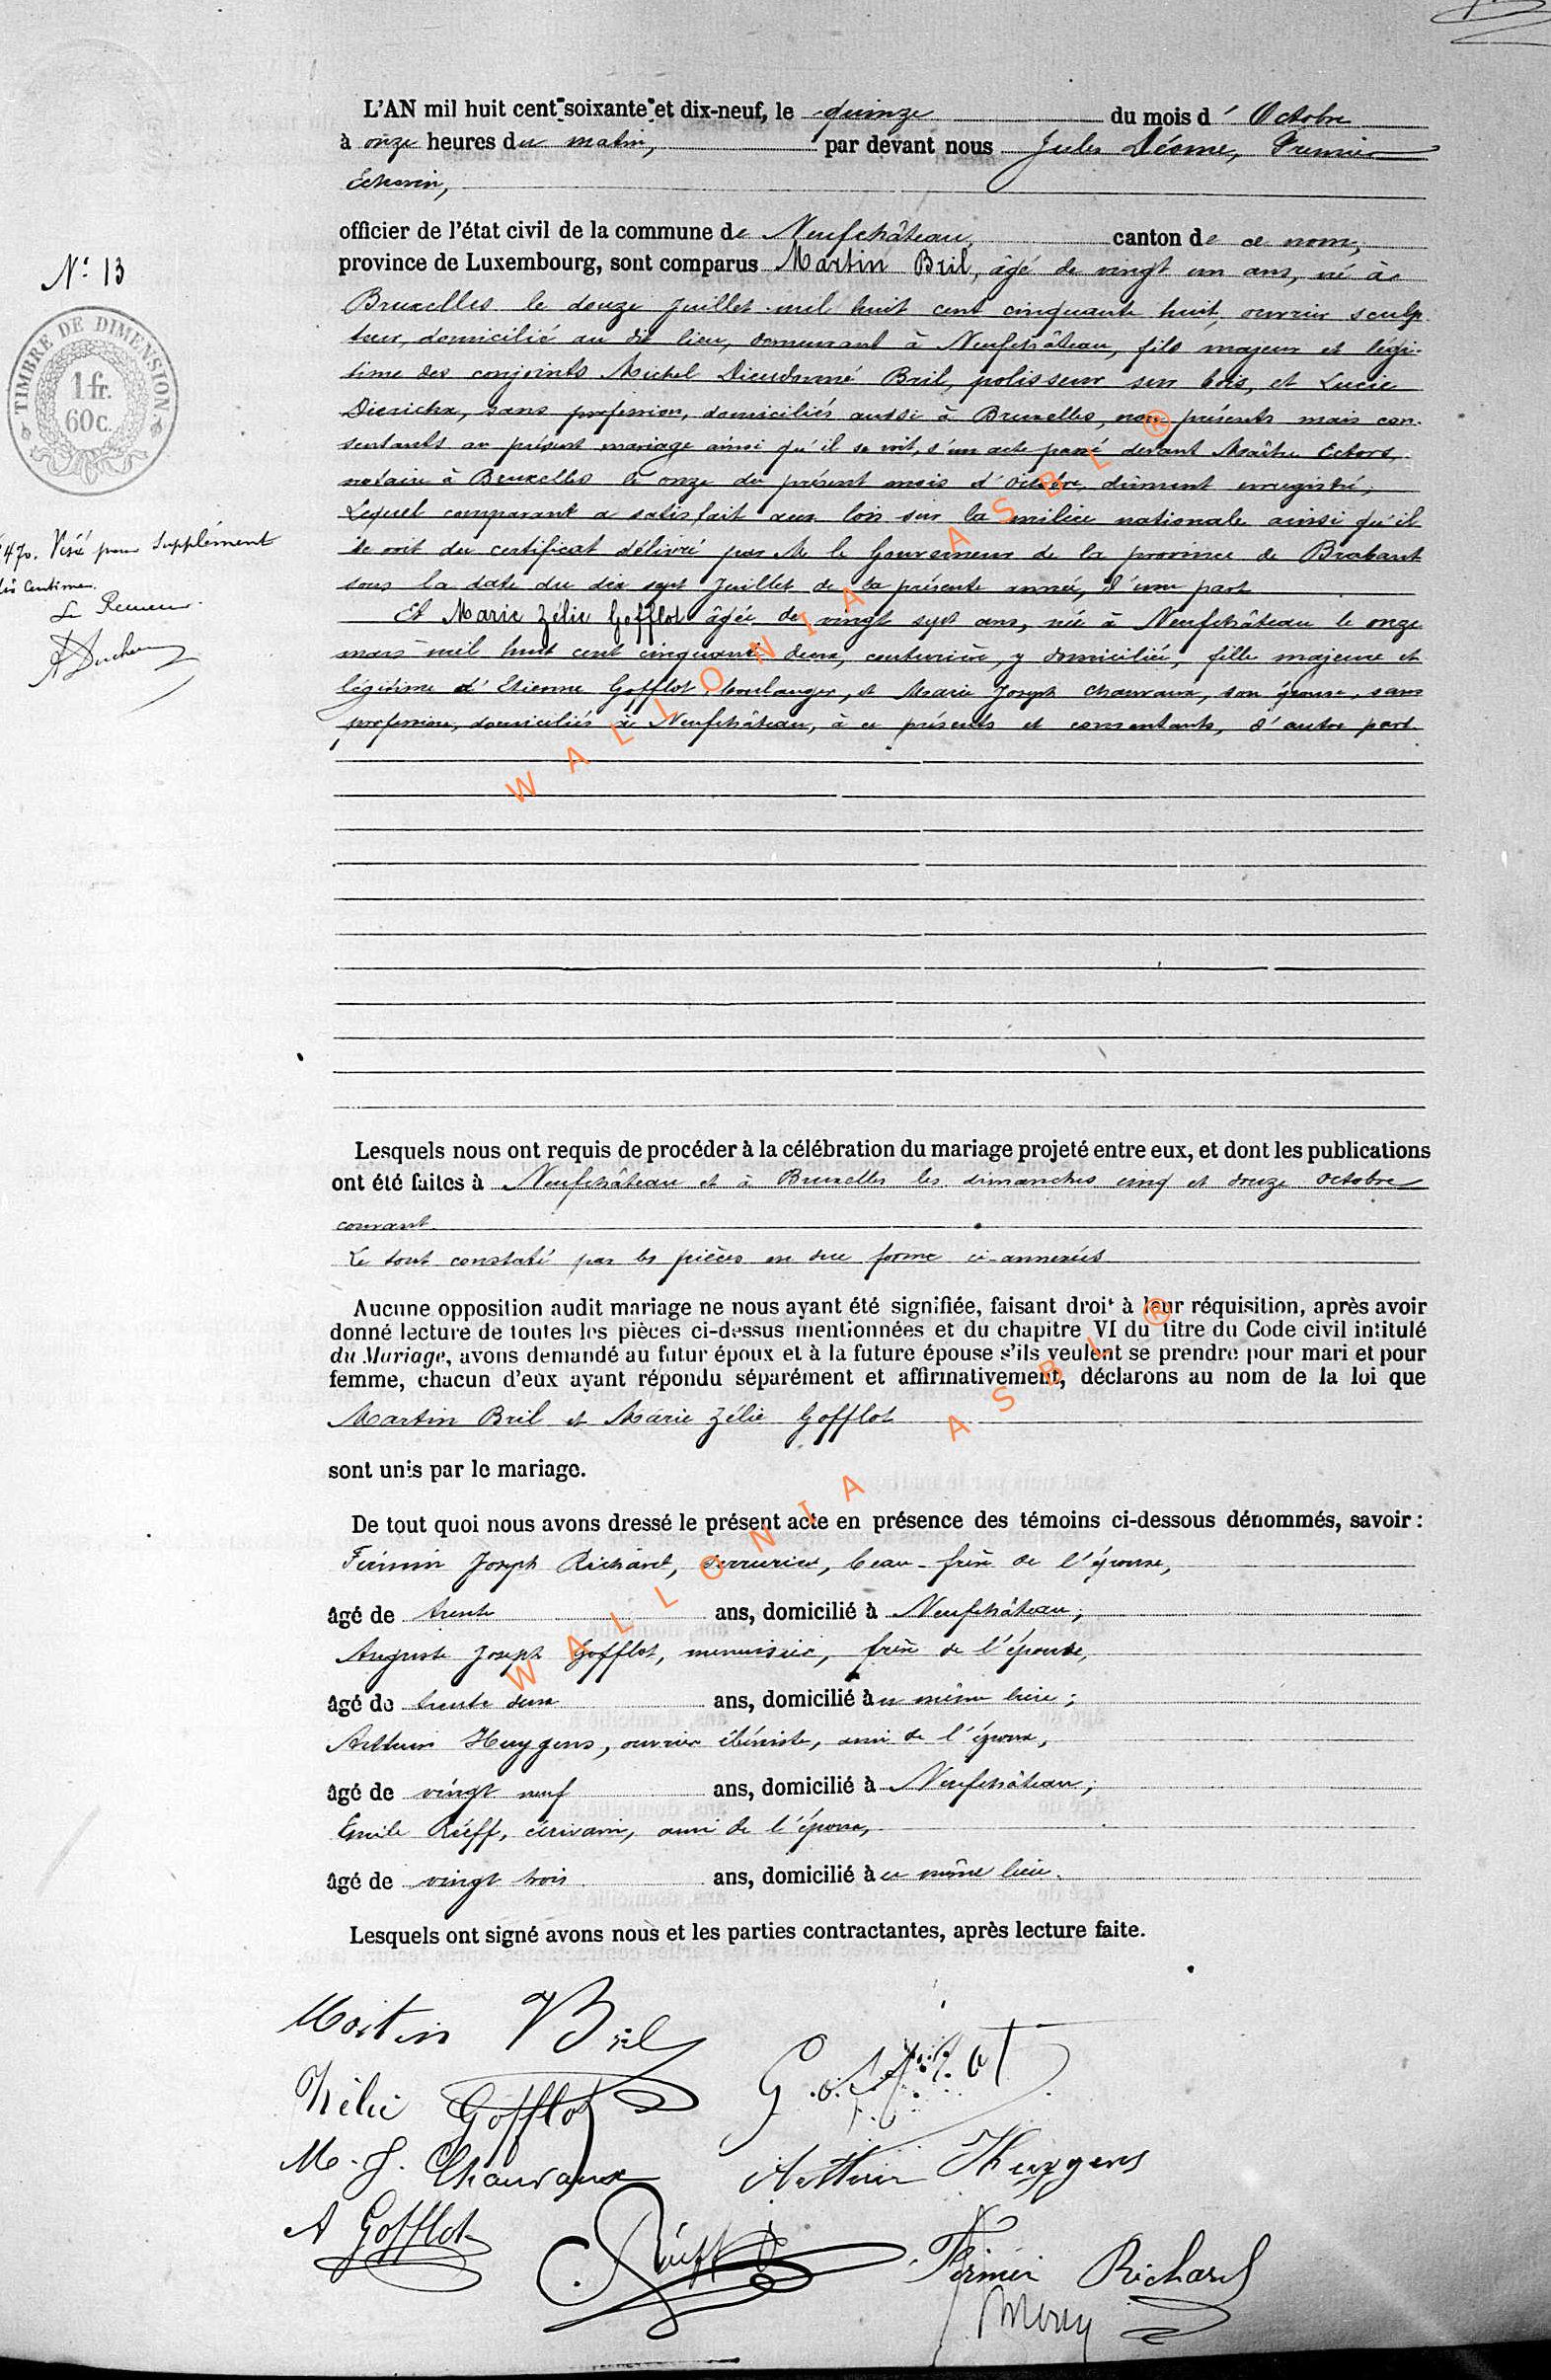 L'AN mil huit cent "soixante" et dix-neuf, le quinze du mois d' Octobre
à onze heures du matin, par devant nous Jules Déome, Premier
Echevin,
officier de l'état civil de la commune de Neufchâteau, canton de ce nom,
N° 13
province de Luxembourg, sont comparus Martin Bril, âgé de vingt un ans, né à
Bruxelles le douze Juillet mil huit cent cinquante huit, ouvrier sculp
TIMBRE DE DIMENSION
1 fr.
60 c.
teur, domicilié au dit lieu, demeurant à Neufchâteau, fils majeur et légi-
time des conjoints Michel Dieudonné Bril, polisseur sur bois, et Lucie
Diericks, sans profession, domiciliés aussi à Bruxelles, non présents mais con-
sentants au présent mariage ainsi qu'il se voit, d'un acte passé devant Maître Ectors,
notaire à Bruxelles le onze du présent mois d'Octobre, dûment enregistré,
Lequel comparant a satisfait aux lois sur la milice nationale ainsi qu'il
470. Visé pour Supplément
se voit du certificat délivré par M le Gouverneur de la province de Brabant
centimes.
sous la date du dix sept Juillet de la présente année, d'une part
Le Receveur.
Et Marie Zélie Gofflot âgée de vingt sept ans, née à Neufchâteau le onze
mars mil huit cent cinquante deux, couturière, y domiciliée, fille majeure et
légitime d'Etienne Gofflot, boulanger, et Marie Joseph Chauvaux, son épouse, sans
profession, domiciliés à Neufchâteau, à ce présents et consentants, d'autre part.
WALLONIA ASBL ®
Lesquels nous ont requis de procéder à la célébration du mariage projeté entre eux, et dont les publications
ont été faites à Neufchâteau et à Bruxelles les dimanches cinq et douze Octobre
courant.
Le tout constaté par les pièces en due forme ci-annexées
Aucune opposition audit mariage ne nous ayant été signifiée, faisant droit à leur réquisition, après avoir
donné lecture de toutes les pièces ci-dessus mentionnées et du chapitre VI du titre du Code civil intitulé
du Mariage, avons demandé au futur époux et à la future épouse s'ils veulent se prendre pour mari et pour
femme, chacun d'eux ayant répondu séparément et affirmativement, déclarons au nom de la loi que
Martin Bril et Marie Zélie Gofflot
sont unis par le mariage.
De tout quoi nous avons dressé le présent acte en présence des témoins ci-dessous dénommés, savoir :
Firmin Joseph Richard, serrurier, beau-frère de l'épouse,
âgé de trente ans, domicilié à Neufchâteau,
Auguste Joseph Gofflot, menuisier, frère de l'épouse,
âgé de trente deux ans, domicilié au même lieu ;
Arthur Huygens, ouvrier ébéniste, ami de l'époux,
âgé de vingt neuf ans, domicilié à Neufchâteau,
Emile Rüeff, écrivain, ami de l'époux,
âgé de vingt trois ans, domicilié à ce même lieu.
WALLONIA ASBL ®
Lesquels ont signé avons nous et les parties contractantes, après lecture faite.
Martin Bril
Zélie Gofflot Gofflot
M. J. Chauvaux Arthur Huygens
A Gofflot Rüeff Firmin Richard